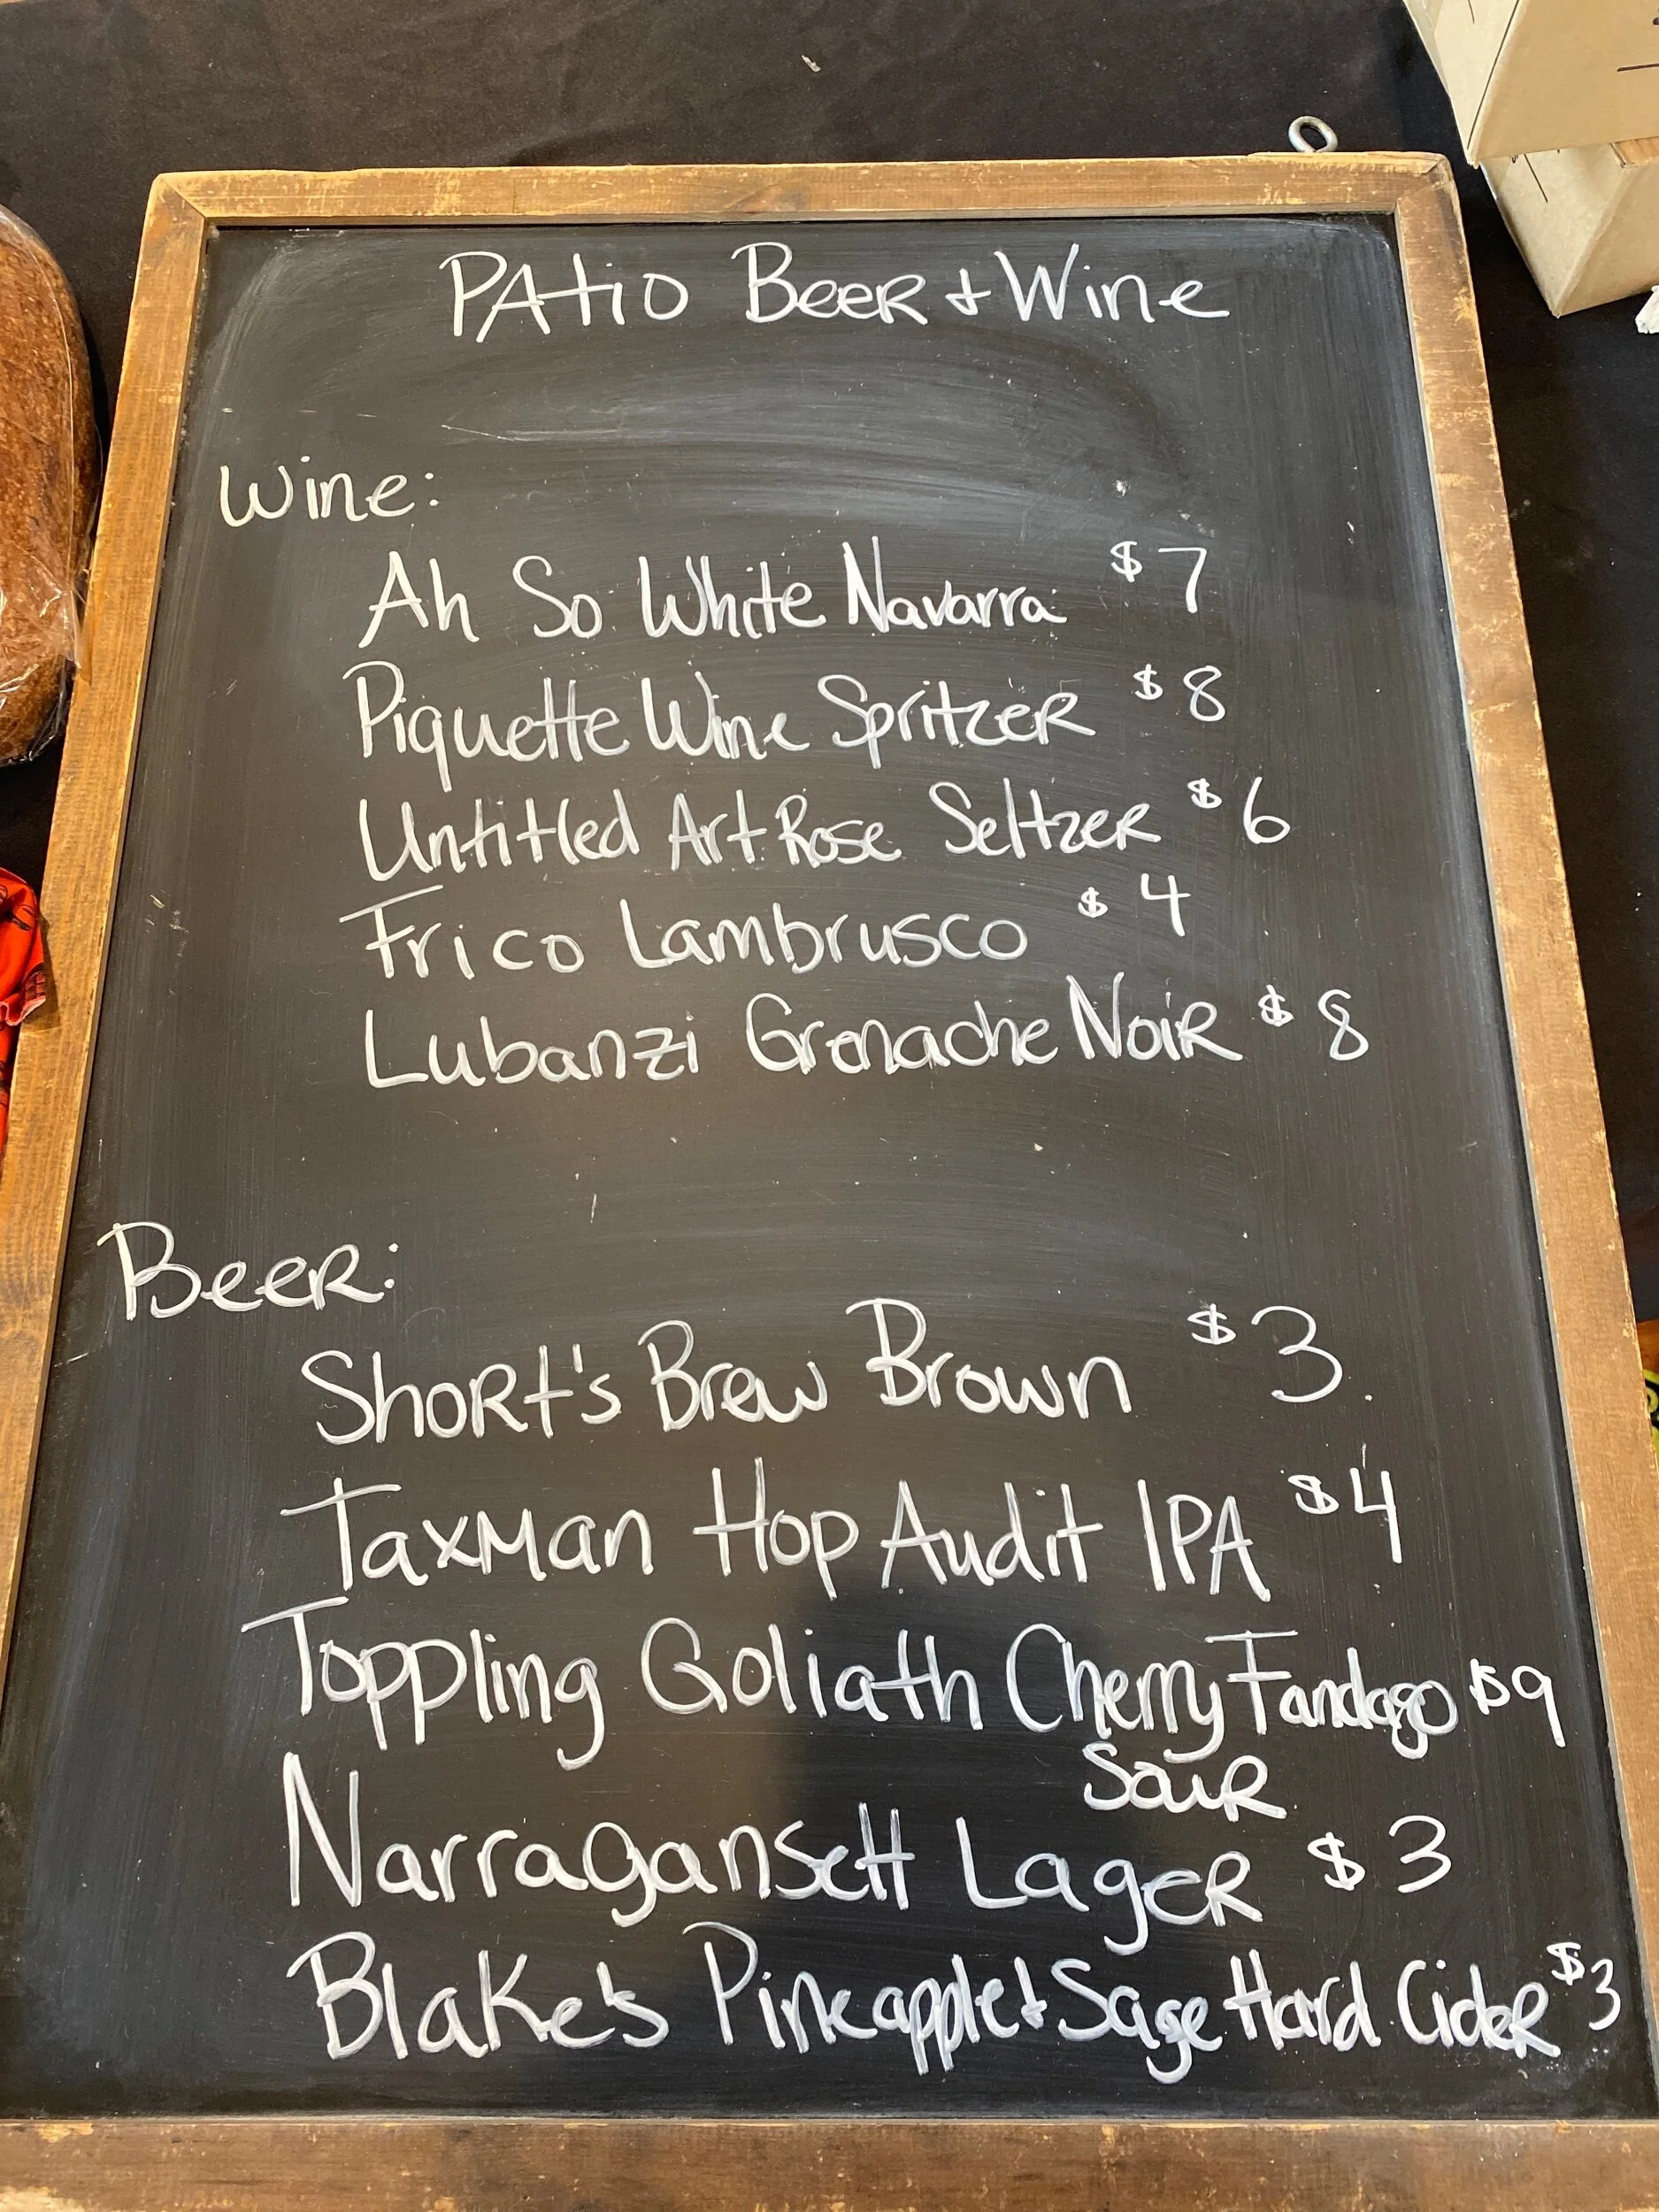 PAtio BeeR + Wine
Wine:
Ah So White Navarra $7
Piquette Wine SpritzeR $8
Untitled Art Rose SeltzeR $6
Frico Lambrusco $4
Lubanzi Grenache NoiR $8
BeeR:
ShoRt's Brew Brown $3
Taxman Hop Audit IPA $4
Toppling Goliath Cherry Fandago $9
SouR
Narragansett LageR $3
Blake's Pineapple + Sage Hard CideR $3